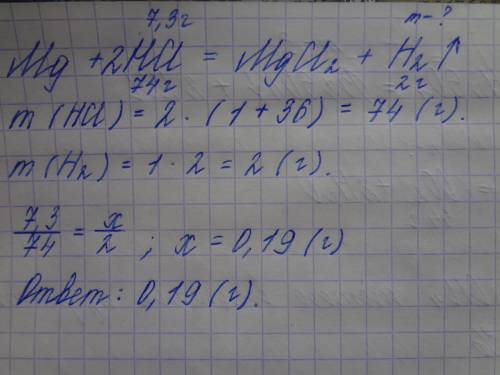 7,3г m-?
Mg + 2HCl = MgCl₂ + H₂↑
74г 2г
m (HCl) = 2 · (1 + 36) = 74 (г).
m (H₂) = 1 · 2 = 2 (г).
7,3/74 = x/2 ; x = 0,19 (г)
Ответ: 0,19 (г).